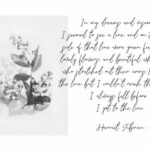 In my dreams and visions,
I seemed to see a line, and on the
side of that line were green fie
lovely flowers, and beautiful whi
who stretched out their arms to
the line, but I couldn't reach the
I always fell before
I got to the line.
- Harriet Tubman